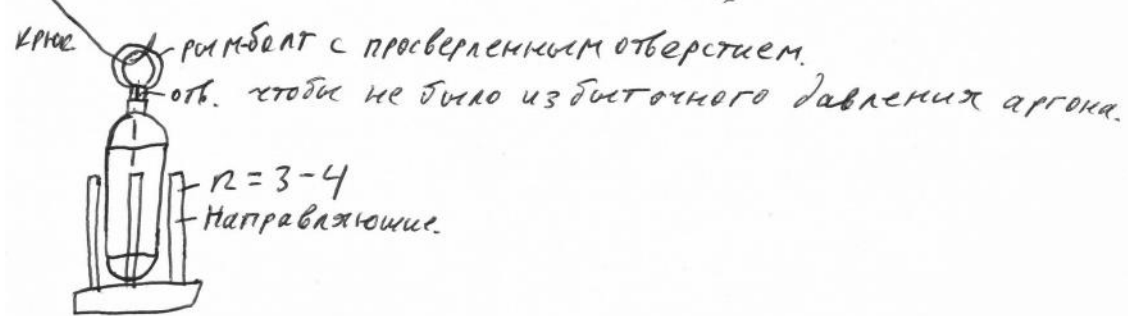 крюк
рым-болт с просверленным отверстием.
отв. чтобы не было избыточного давления аргона.
n = 3-4
Направляющие.